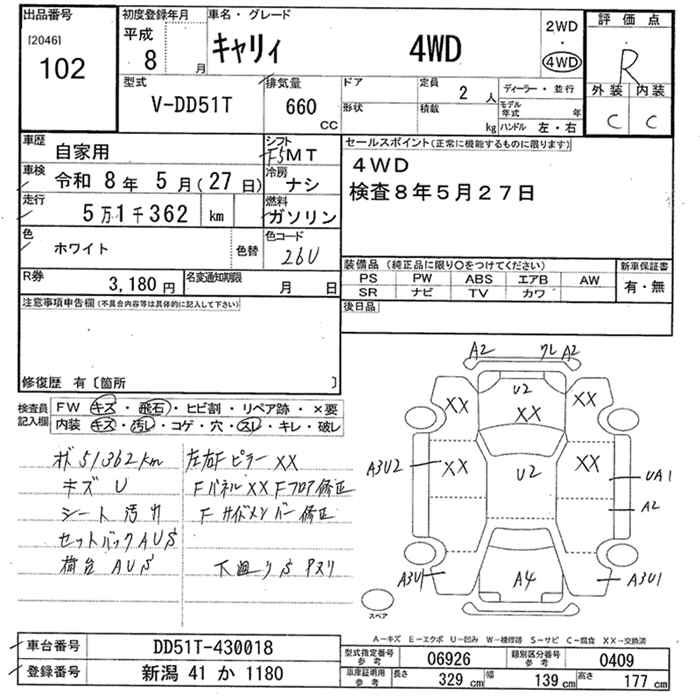 出品番号
[2046]
102
初度登録年月
平成
8
月
車名・グレード
キャリィ 4WD
2WD
・
4WD
評価点
R
外装 内装
C C
型式
V-DD51T
排気量
660
CC
ドア
形状
定員
2 人
積載
kg
ディーラー・並行
モデル
年式 年
ハンドル 左・右
車歴
自家用
シフト
F5MT
車検
令和 8年 5月(27日)
冷房
ナシ
走行
5万1千362 km
燃料
ガソリン
色
ホワイト
色替
色コード
26U
R券
3,180円
名変通知期限
月 日
セールスポイント(正常に機能するものに限ります)
4WD
検査8年5月27日
装備品 (純正品に限り○をつけてください)
PS PW ABS エアB AW
SR ナビ TV カワ
新車保証書
有・無
後日品
注意事項申告欄(不具合内容等は具体的に記入して下さい)
修復歴 有〔箇所 〕
検査員
記入欄
FW キズ・飛石・ヒビ割・リペア跡・×要
内装 キズ・汚レ・コゲ・穴・スレ・キレ・破レ
ボ 51362km
キズ U
シート 汚れ
セットバック AUS
荷台 AUS
左右Fピラー XX
Fパネル XX Fフロア修正
Fサイドメンバー修正
下廻りS サスリ
A2 ワレ A2
U2
XX XX XX
A3U2 XX U2 XX UA1
A2
A3U1 A4 A3U1
スペア
A-キズ E-エクボ U-凹み W-補修跡 S-サビ C-腐食 XX-交換済
車台番号
DD51T-430018
登録番号
新潟 41 か 1180
型式指定番号
参考
06926
類別区分番号
参考
0409
車庫証明用
参考
長さ
329 cm
幅
139 cm
高さ
177 cm